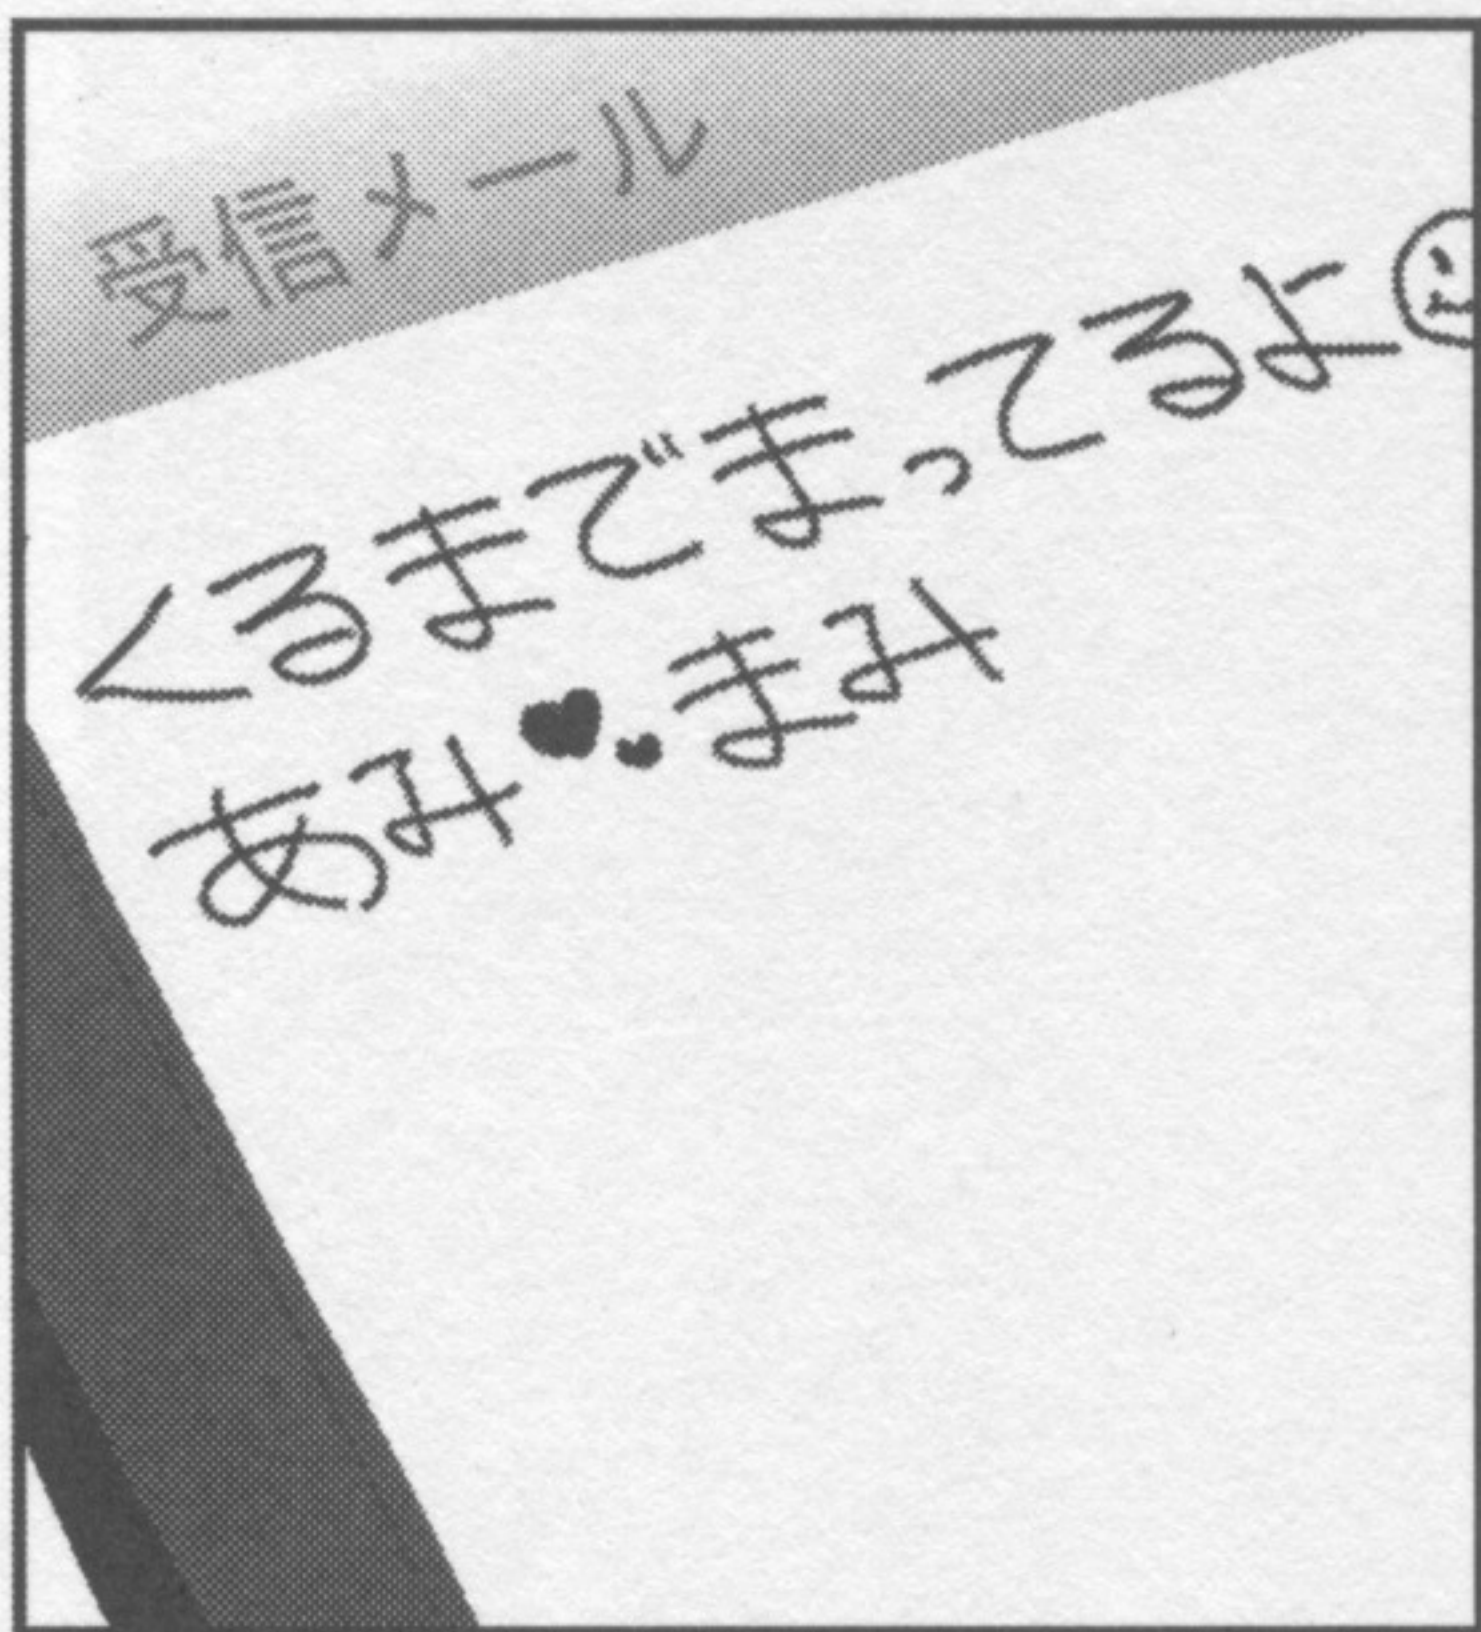 受信メール
くるまでまってるよ☺
あみ♥♥まみ